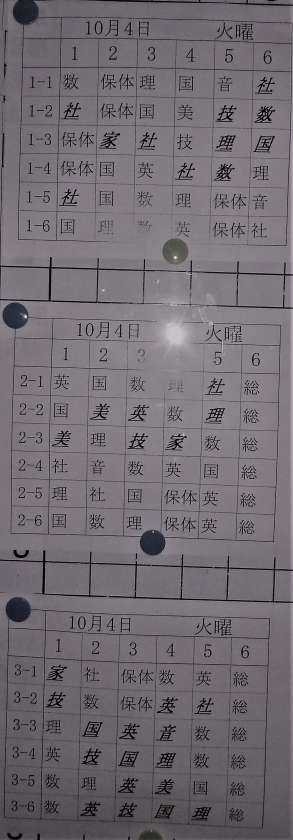 10月4日 火曜
1 2 3 4 5 6
1-1 数 保体 理 国 音 社
1-2 社 保体 国 美 技 数
1-3 保体 家 社 技 理 国
1-4 保体 国 英 社 数 理
1-5 社 国 数 理 保体 音
1-6 国 理 数 英 保体 社
10月4日 火曜
1 2 3 5 6
2-1 英 国 数 理 社 総
2-2 国 美 英 数 理 総
2-3 美 理 技 家 数 総
2-4 社 音 数 英 国 総
2-5 理 社 国 保体 英 総
2-6 国 数 理 保体 英 総
10月4日 火曜
1 2 3 4 5 6
3-1 家 社 保体 数 英 総
3-2 技 数 保体 英 社 総
3-3 理 国 英 音 数 総
3-4 英 技 国 理 数 総
3-5 数 理 英 美 国 総
3-6 数 英 技 国 理 総